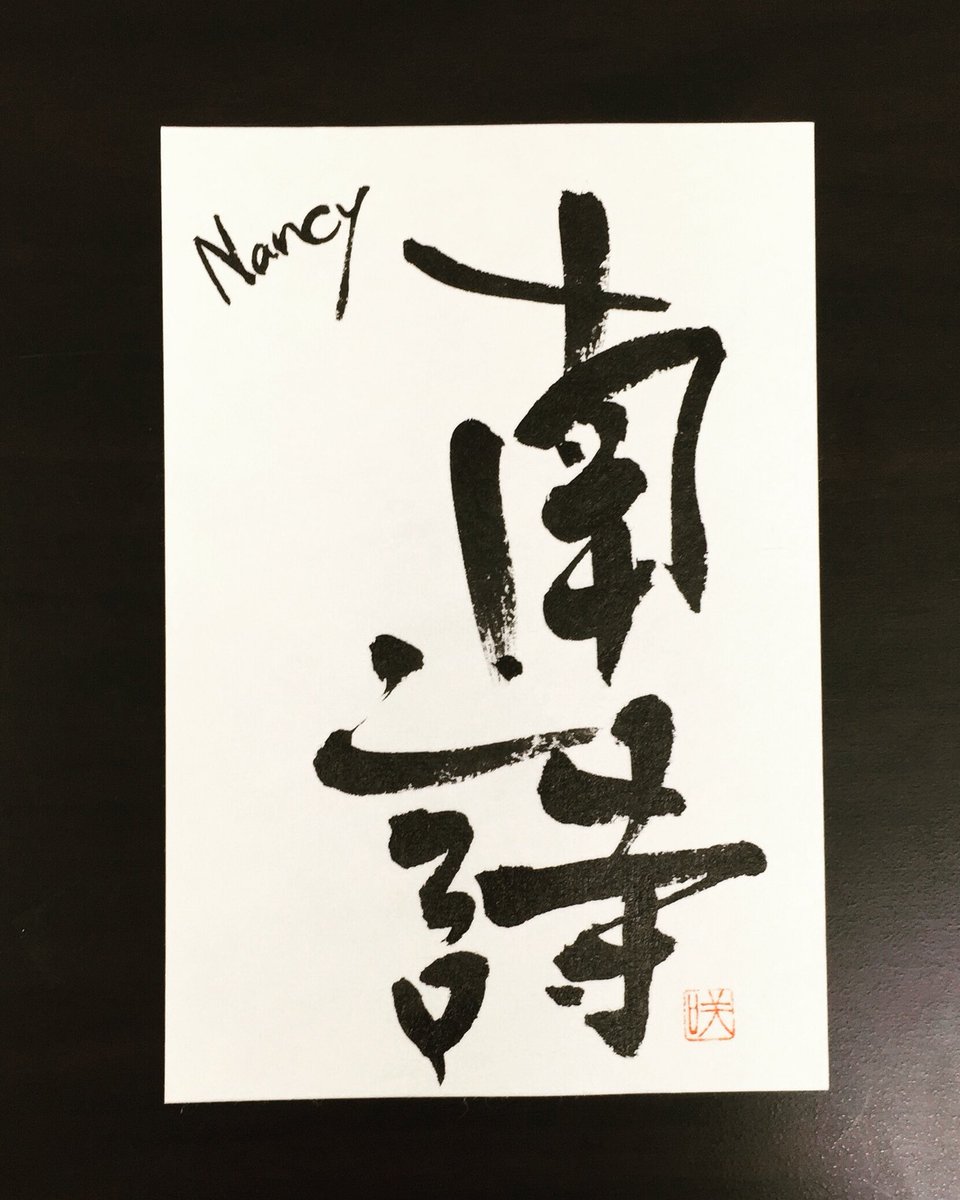 Nancy
南詩
咲